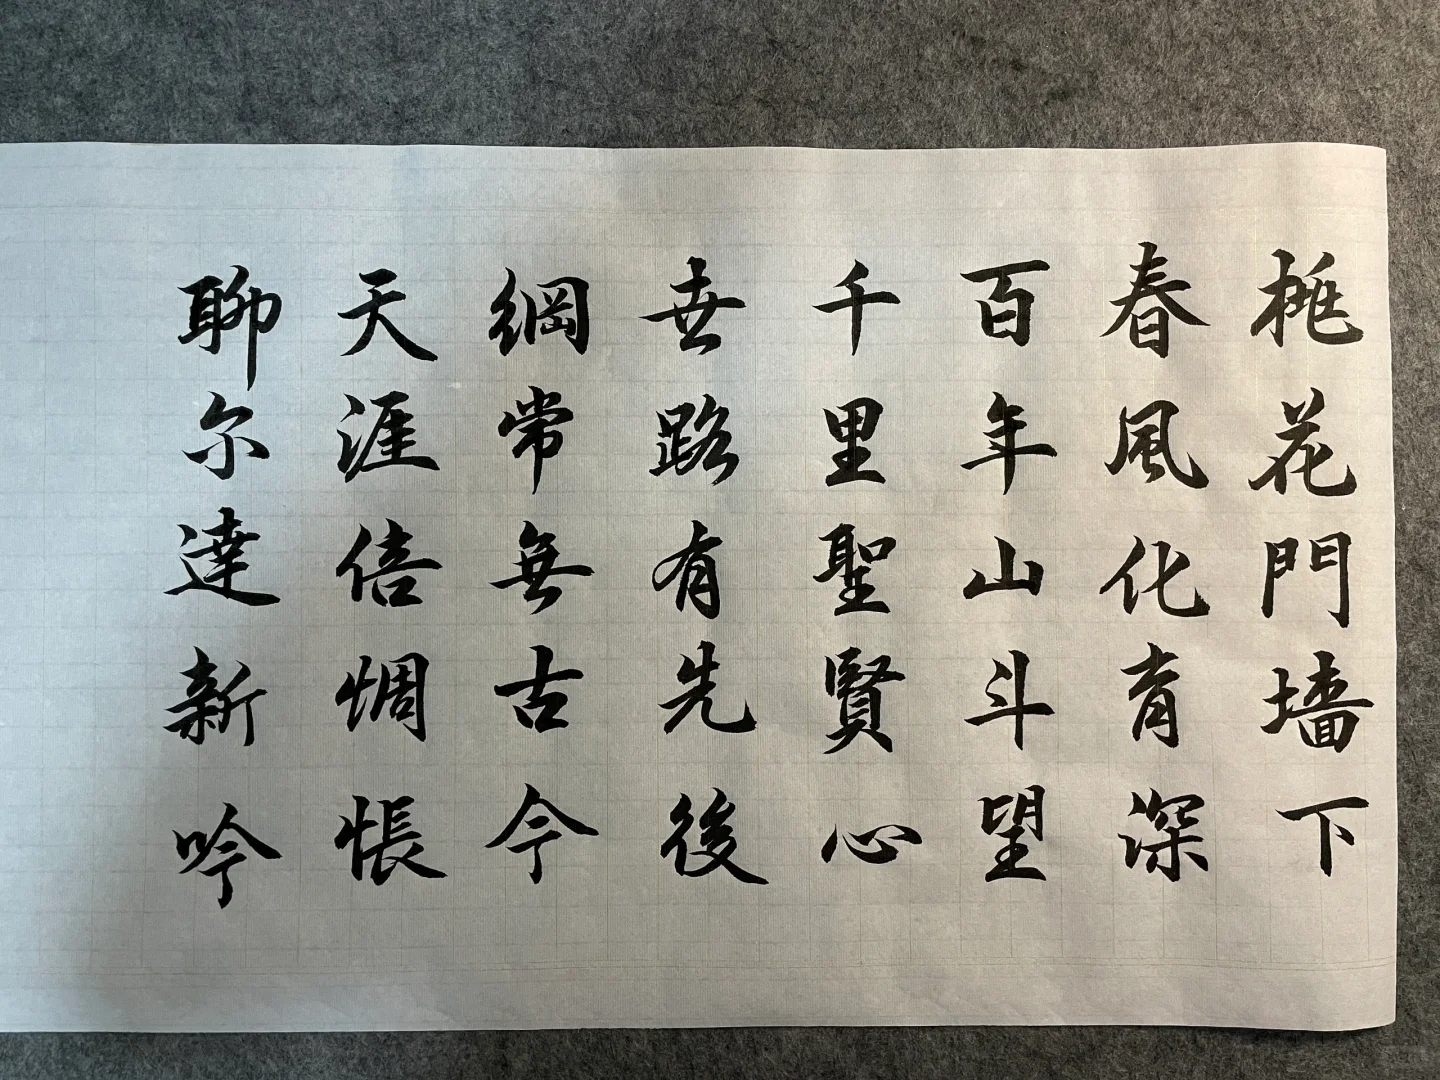 桃花門墻下
春風化育深
百年山斗望
千里聖賢心
世路有先後
綱常無古今
天涯倍惆悵
聊尔達新吟